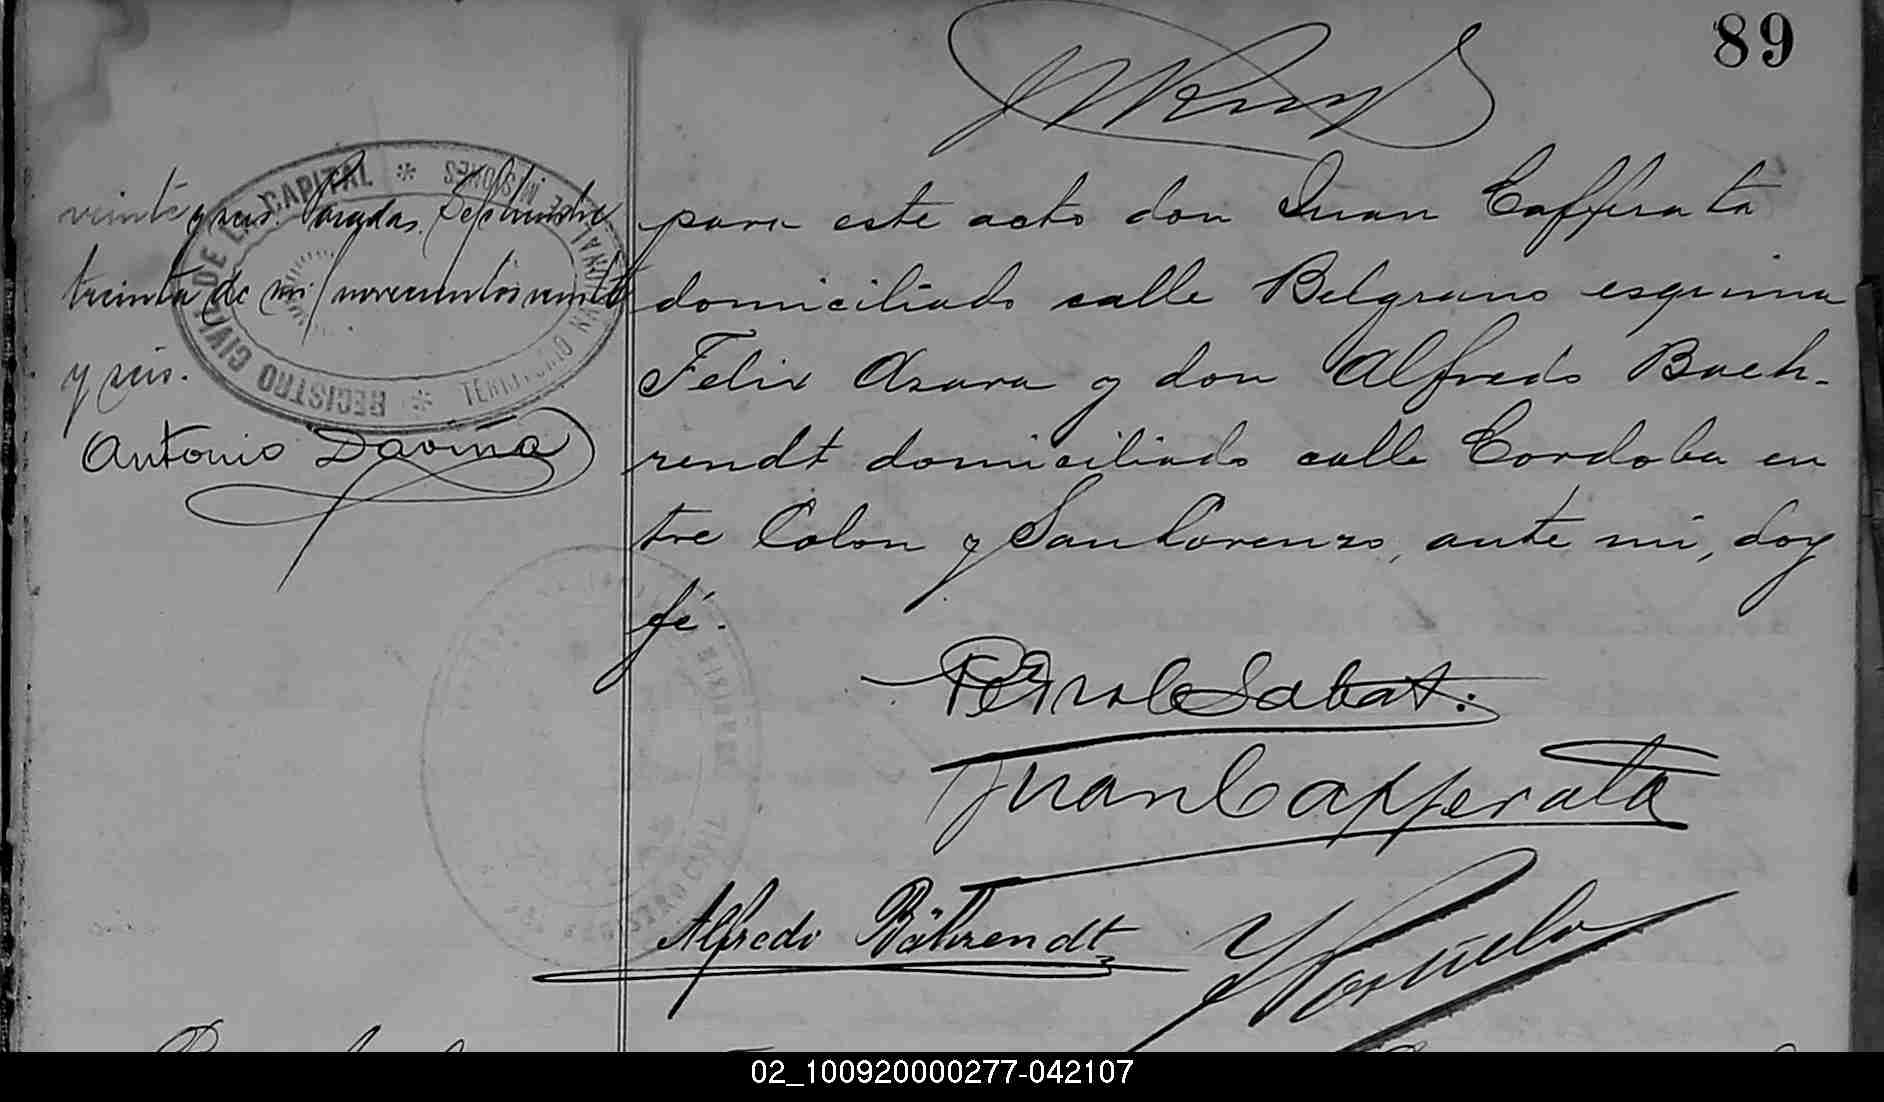 89
veinte y seis. Posadas. Septiembre
treinta de mil novecientos veinte
y seis.
Antonio Daviña
REGISTRO CIVIL DE LA CAPITAL * TERRITORIO NACIONAL DE MISIONES *
para este acto don Juan Cafferata
domiciliado calle Belgrano esquina
Felix Azara y don Alfredo Baeh-
rendt domiciliado calle Cordoba en
tre Colon y San Lorenzo, ante mi, doy
fé.
Sabat.
Juan Cafferata
Alfredo Bährendt
REGISTRO CIVIL
02_100920000277-042107